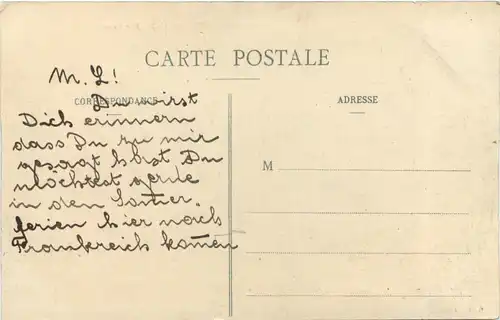 CARTE POSTALE
CORRESPONDANCE
ADRESSE
M
M. L!
Du wirst
Dich erinnern
dass Du zu mir
gesagt hast Du
möchtest gerne
in den Som̅er.
ferien hier nach
Frankreich kom̅en